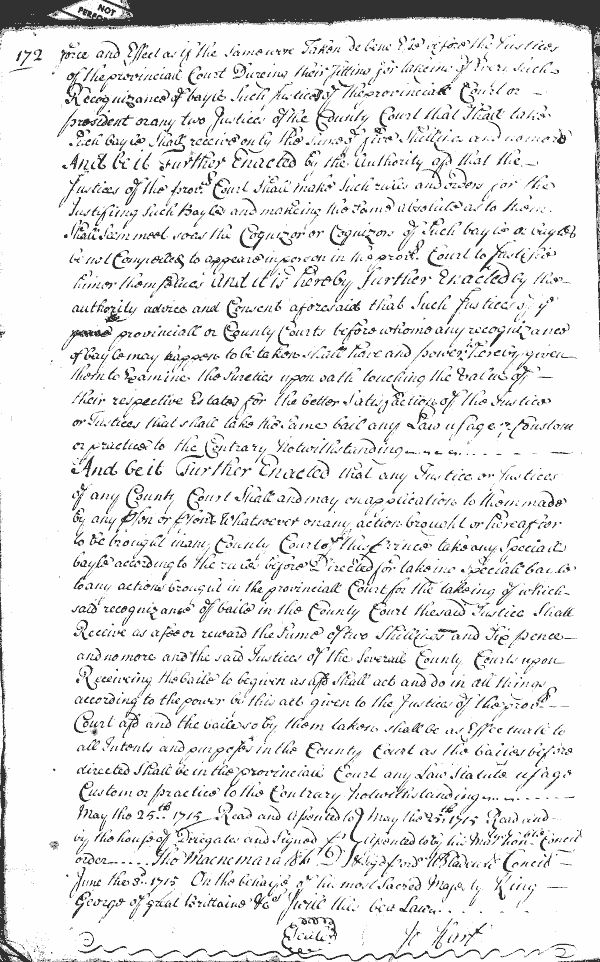 NOT
172 force and Effect as if the same were Taken de bene Esse before the Justices
of the provinciall Court Dureing their sitting for takeing of Every such
Recognizance of bayle Such Justices of the provinciall Court or
president or any two Justices of the County Court that Shall take
Such bayle Shall receive only the Sume of five Shillings and no more
And be it Further Enacted by the Authority afd that the
Justices of the provll Court Shall make Such rules and orders for the
Justifing Such Bayle and makeing the same absolute as to them
Shall Seem meet soe as the Cognizor or Cognizors of Such bayle or bayles
be not Compelled to appeare in person in the provll Court to Justifie
him or themselves And it is hereby Further Enacted by the
authority advice and Consent aforesaid that Such Justices of ye
provinciall or County Courts before whome any recognizance
of bayle may happen to be taken shall have and power hereby given
them to Examine the Sureties upon oath touching the value of
their respective Estates for the better Satisfaction of the Justice
or Justices that shall take the same bail any Law usage Custom
or practice to the Contrary Notwithstanding
And be it Further Enacted that any Justice or Justices
of any County Court Shall and may on application to them made
by any pson or psons Whatsoever on any action brought or hereafter
to be brought in any County Court of this Province take any Speciall
bayle according to the rules before Directed for takeing Speciall baile
to any actions brought in the provinciall Court for the takeing of which
said recognizance of baile in the County Court the said Justice Shall
Receive as a fee or reward the Sume of two Shillings and Six pence
and no more and the said Justices of the Severall County Courts upon
Receiveing the baile to be given as afd Shall act and do in all things
according to the power in this act given to the Justices of the provll
Court afd and the baile so by them taken shall be as Effectuall to
all Intents and purposes in the County Court as the bailes before
directed Shall be in the provinciall Court any Law Statute usage
Custom or practice to the Contrary Notwithstanding
May the 25th 1715 Read and assented to May the 25th 1715 Read and
by the house of Delegates and Signed p assented to by his Majtys honble Councill
order Tho Macnemara Clk Signed p ordr W Bladen Cl Concill
June the 3d 1715 On the behalfe of his most Sacred Majesty King
George of great Brittaine &c I will this be a Law
Seale Jo Hart